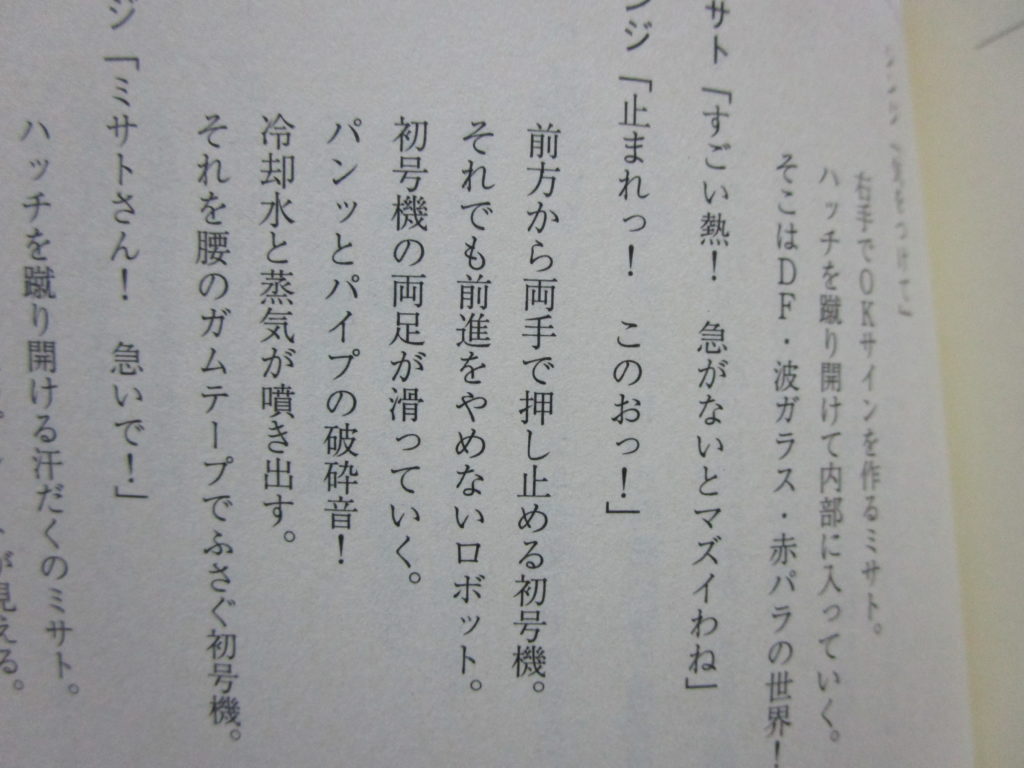 をつけて」
右手でOKサインを作るミサト。
ハッチを蹴り開けて内部に入っていく。
そこはDF・波ガラス・赤パラの世界！
サト「すごい熱！　急がないとマズイわね」
ンジ「止まれっ！　このおっ！」
前方から両手で押し止める初号機。
それでも前進をやめないロボット。
初号機の両足が滑っていく。
パンッとパイプの破砕音！
冷却水と蒸気が噴き出す。
それを腰のガムテープでふさぐ初号機。
ジ「ミサトさん！　急いで！」
ハッチを蹴り開ける汗だくのミサト。
が見える。